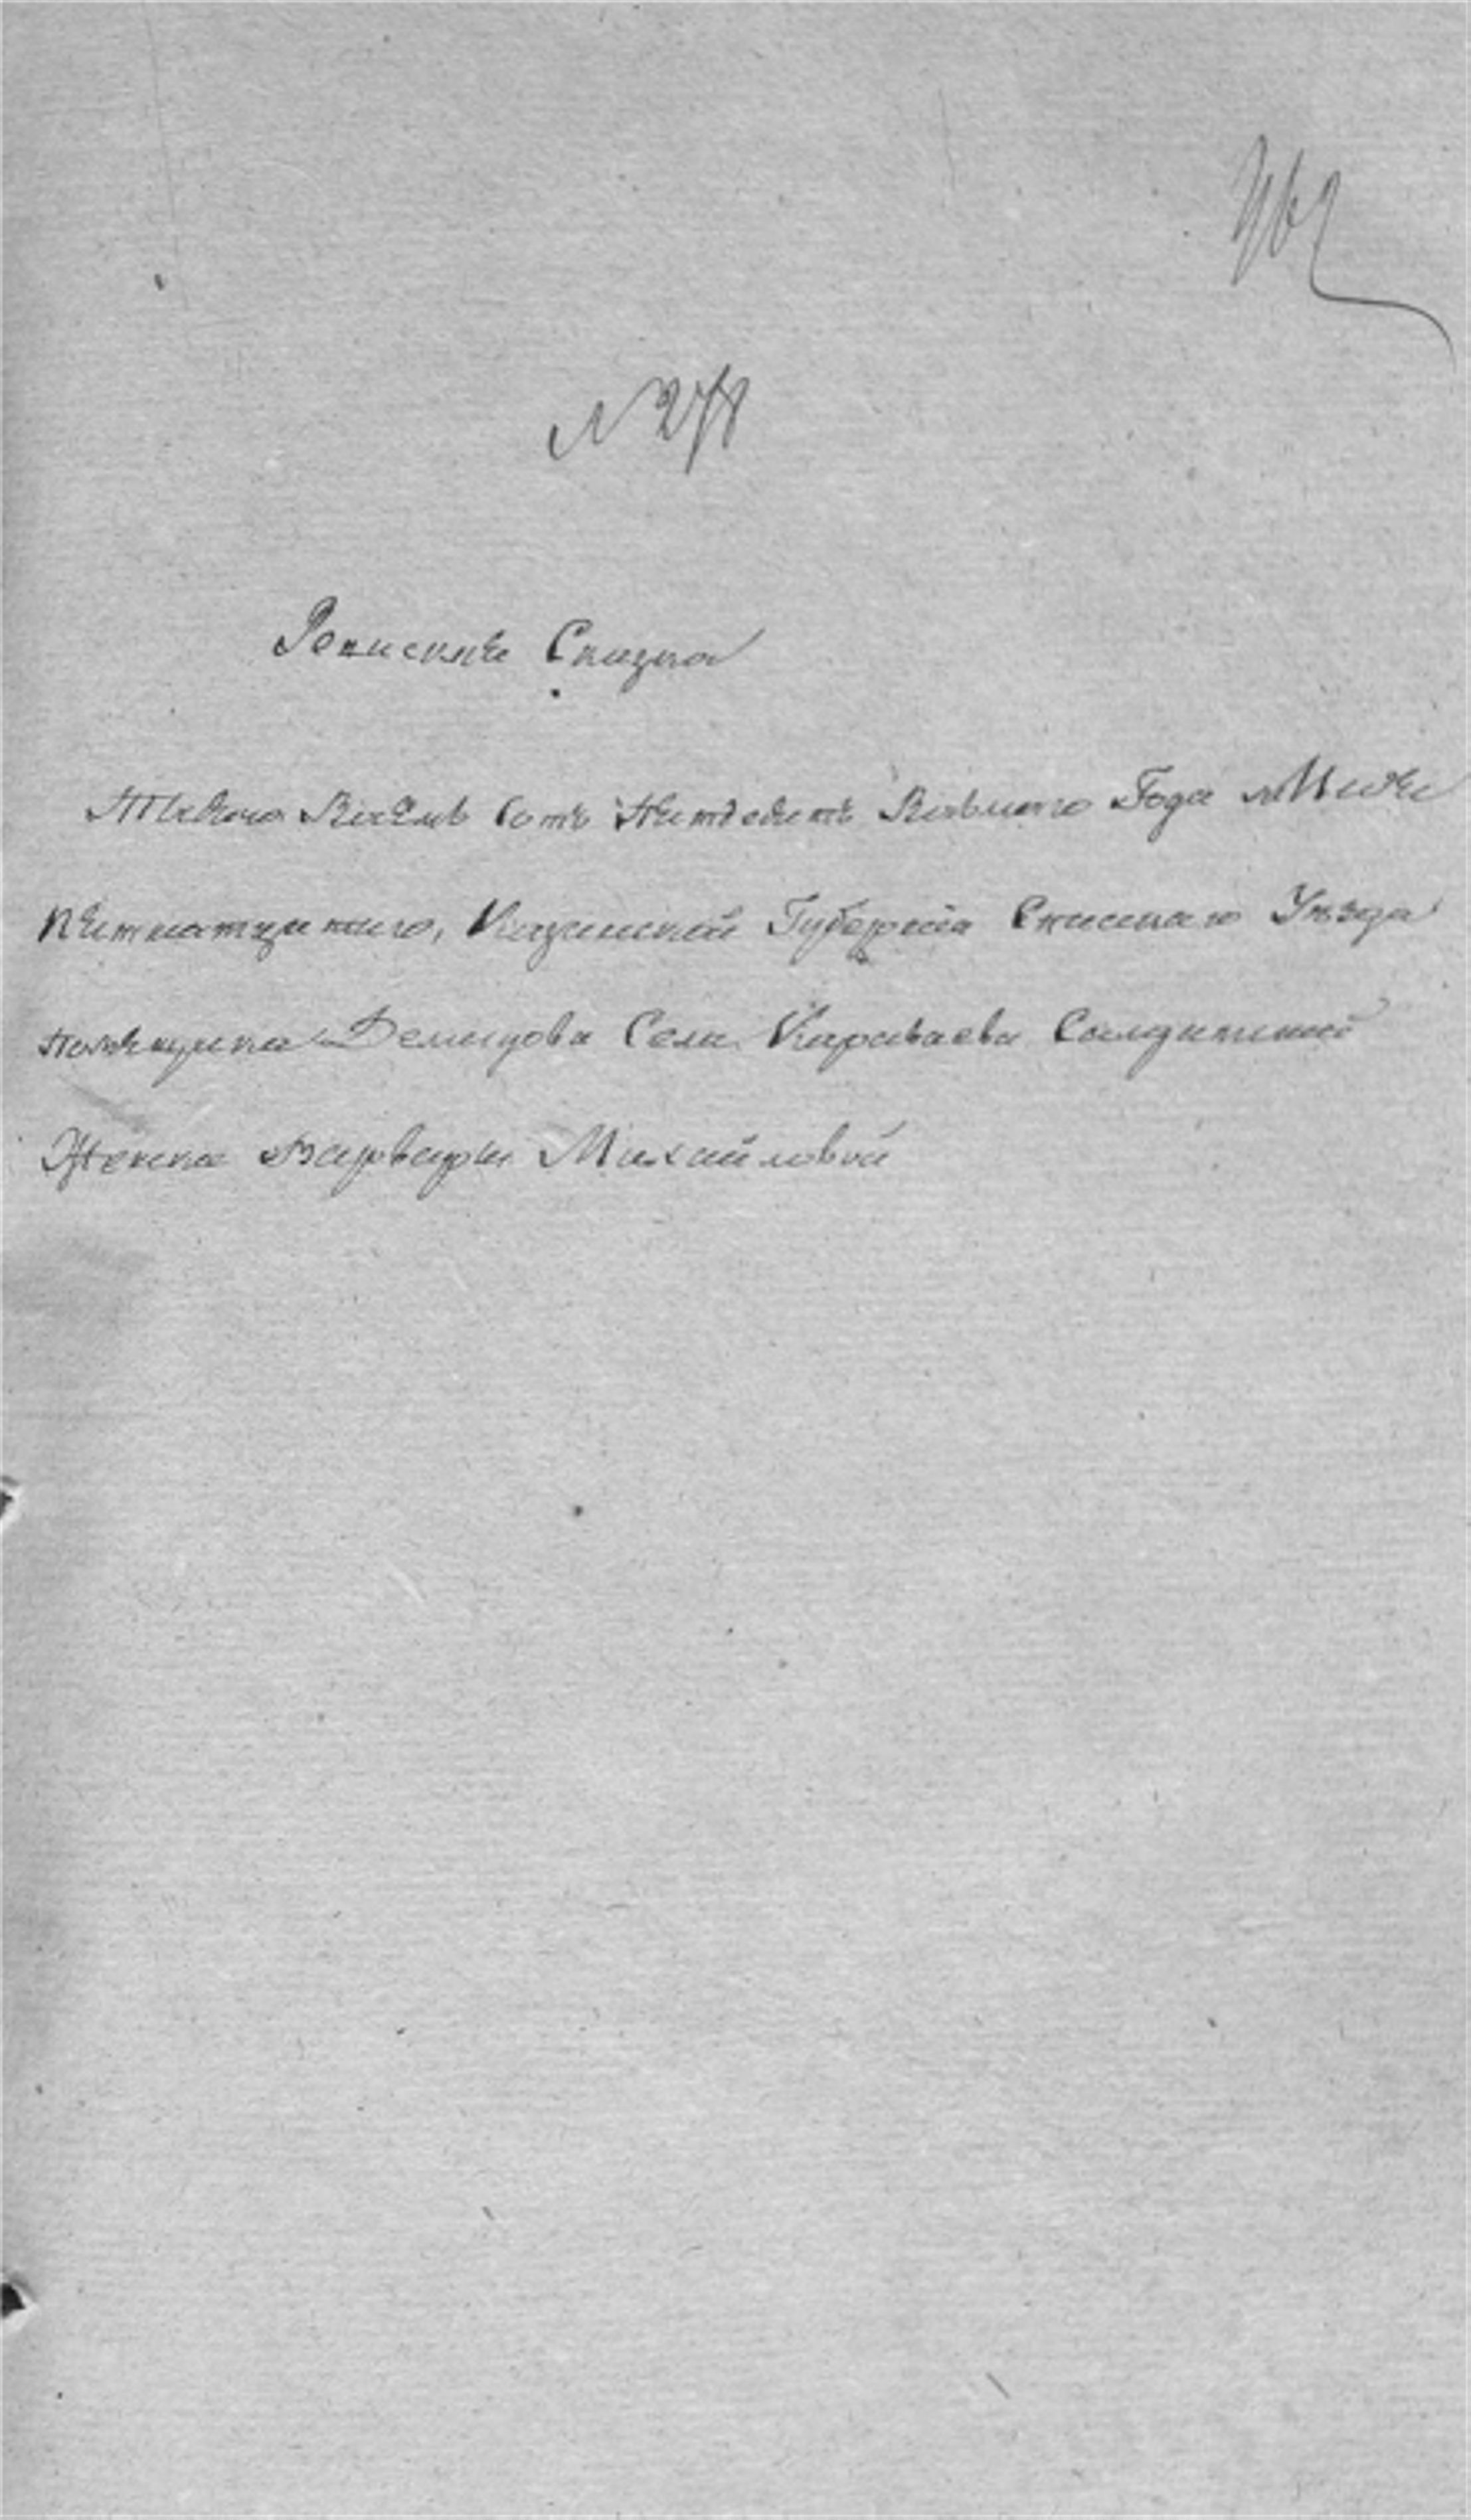 N 278
Ревиская Сказка
Тысяча Восемь сотъ Пятьдесятъ Восьмого Года Мая
пятнатцатого, Казанской Губернии Спасскаго Уѣзда
помѣщика Демидова Села Караваева Салдатской
Жены Варвары Михайловой